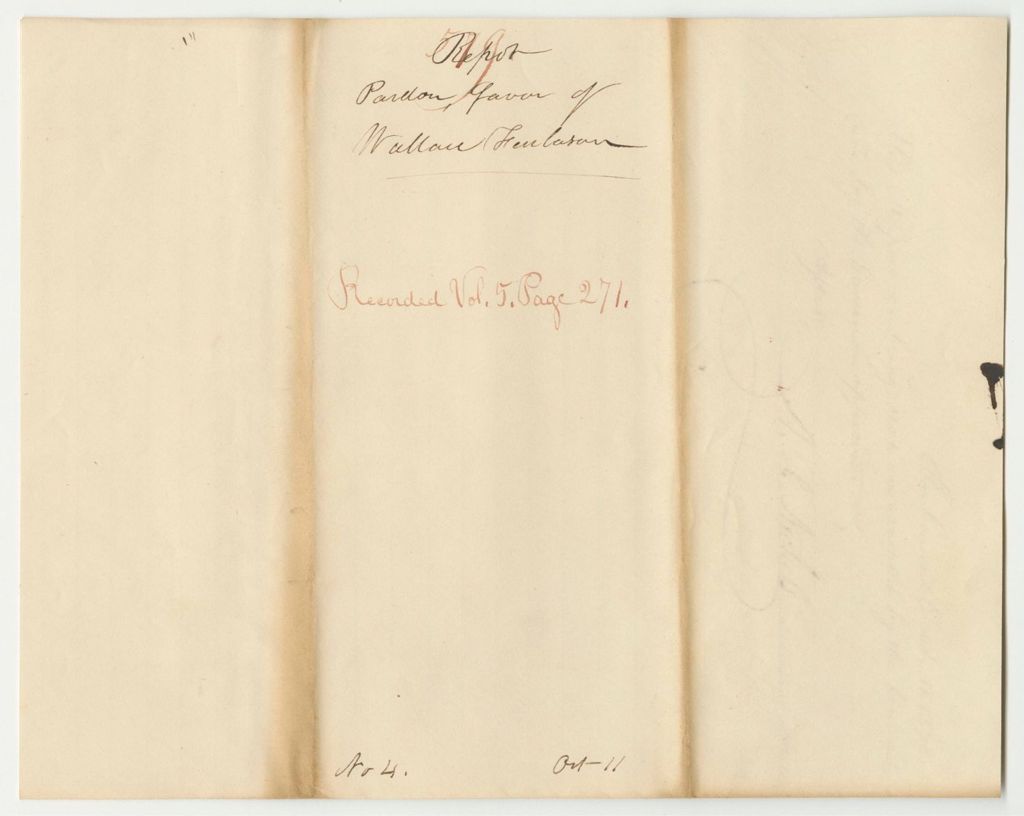 Repot
Pardon, favor of
Wallace Fenlason
Recorded Vol. 5. Page 271.
No 4.
Oct 11